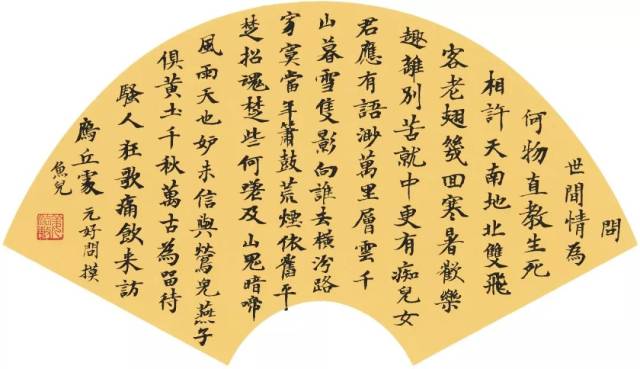 問
世間情為
何物直教生死
相許天南地北雙飛
客老翅幾回寒暑歡樂
趣離別苦就中更有痴兒女
君應有語渺萬里層雲千
山暮雪隻影向誰去橫汾路
寂寞當年簫鼓荒煙依舊平
楚招魂楚些何嗟及山鬼暗啼
風雨天也妒未信與鶯兒燕子
俱黃土千秋萬古為留待
騷人狂歌痛飲來訪
雁丘處 元好問摸
魚兒